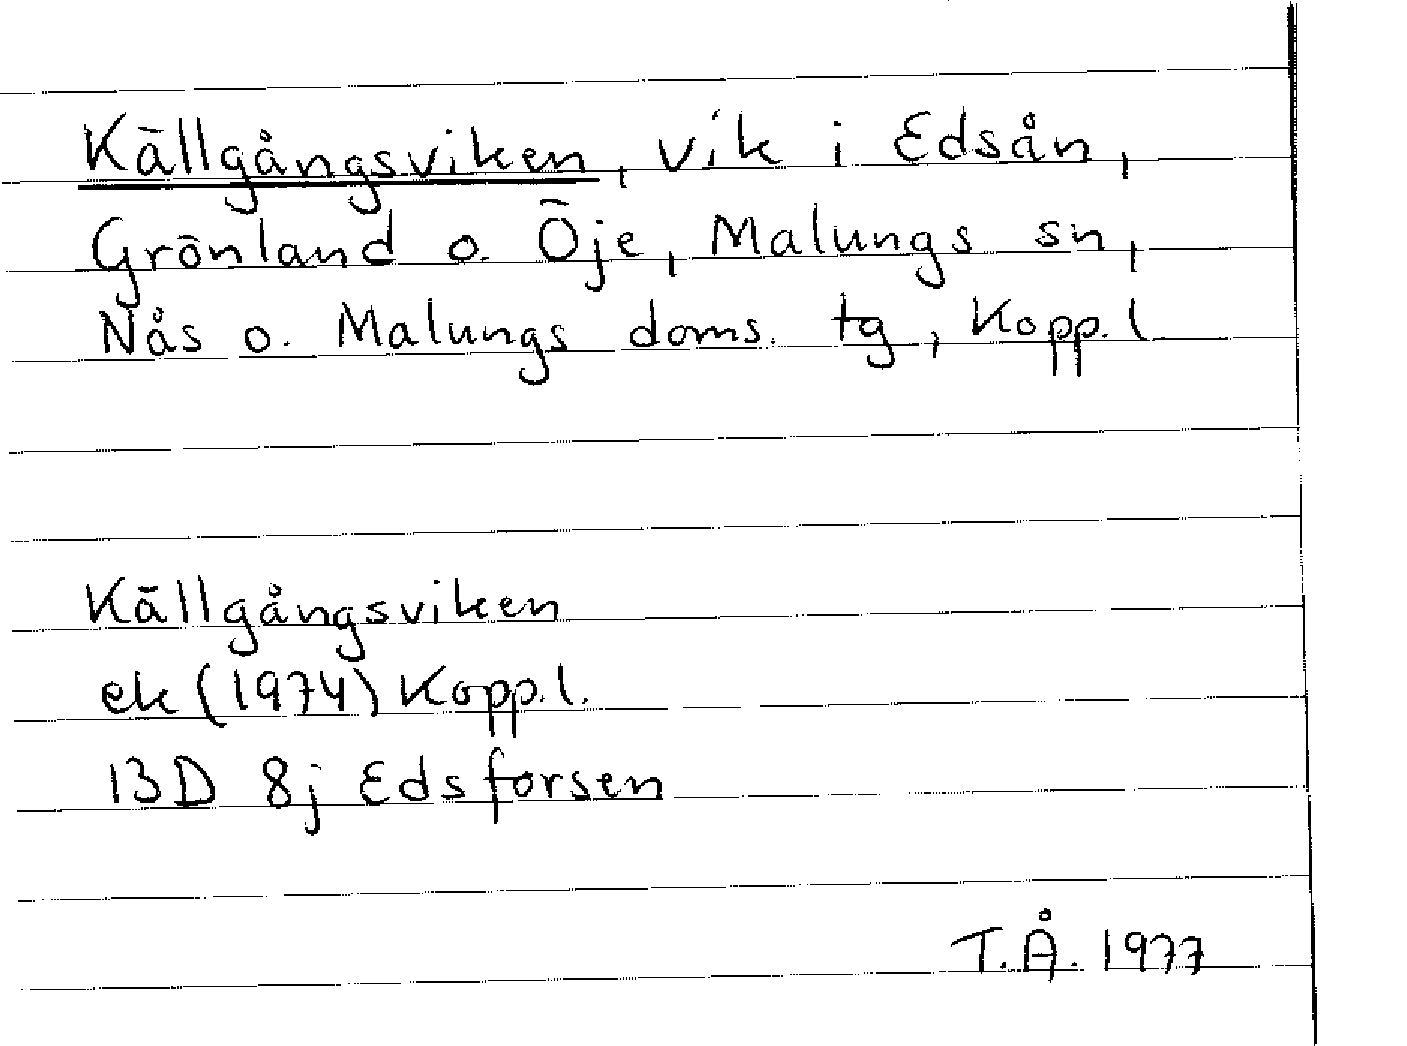 Källgångsviken, vik i Edsån,
Grönland o. Öje, Malungs sn,
Nås o. Malungs doms. tg, Kopp. l
Källgångsviken
ek (1974) Kopp.l.
13D 8j Edsforsen
T.Å. 1977